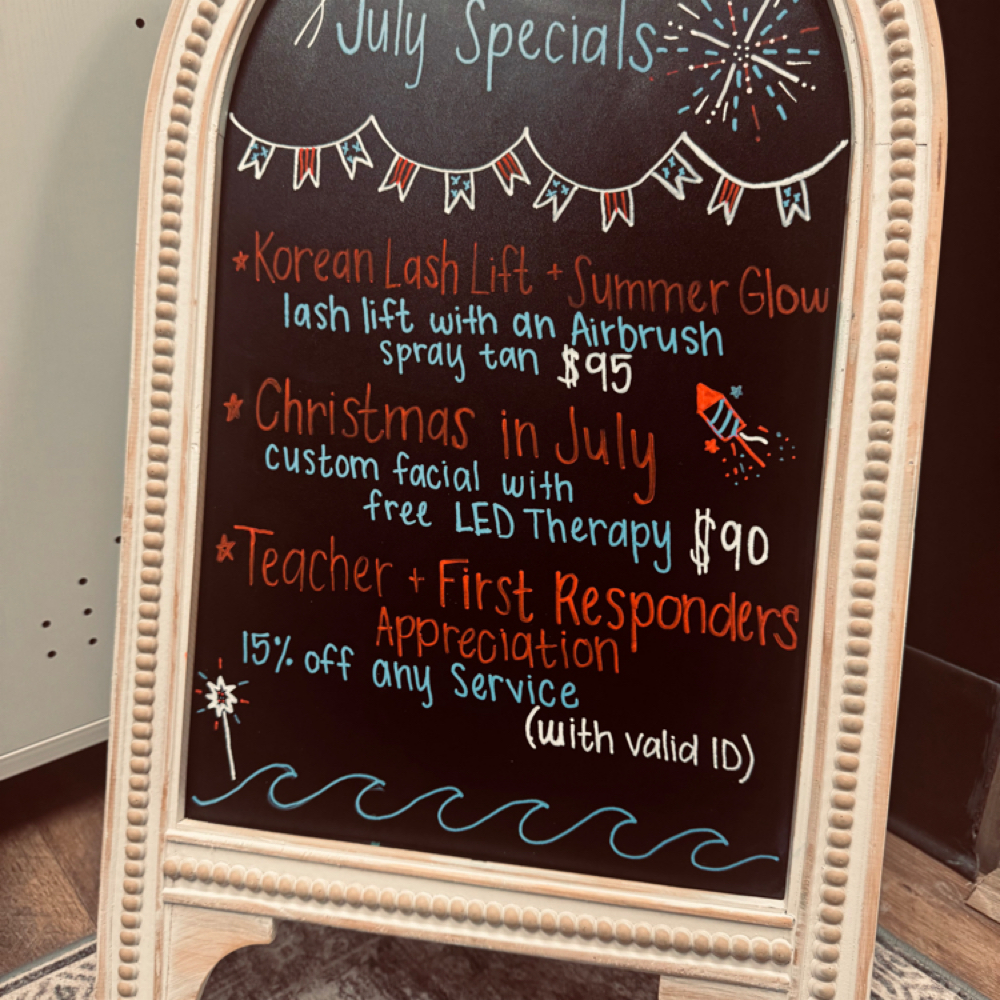 July Specials
Korean Lash Lift + Summer Glow
lash lift with an Airbrush
spray tan $95
Christmas in July
custom facial with
free LED Therapy $90
Teacher + First Responders
Appreciation
15% off any Service
(with valid ID)